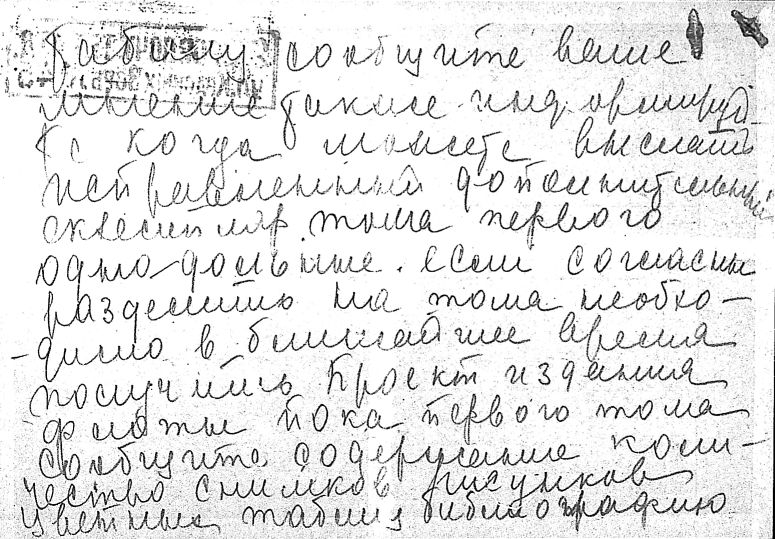 сообщите ваше
мнение также информируй-
те когда можете выслать
исправленный дополнительный
экземпляр тома первого
если согласны
разделению на тома необхо-
димо в ближайшее время
получить проект издания
пока первого тома
сообщите содержание коли-
чество снимков рисунков
цветных таблиц библиографию